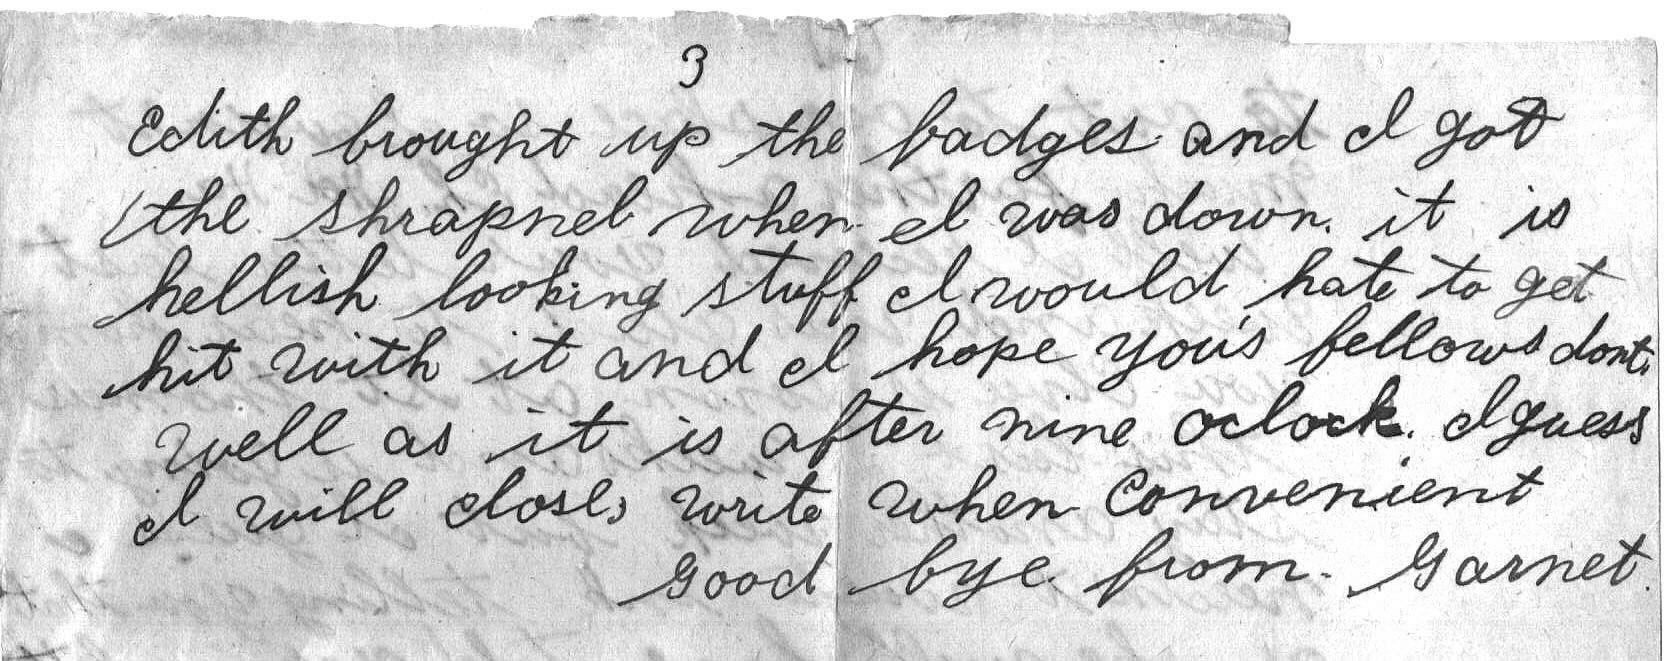 3
Edith brought up the badges and I got
the shrapnel when I was down. it is
hellish looking stuff I would hate to get
hit with it and I hope you's fellows dont.
well as it is after nine oclock. I guess
I will close, write when Convenient
Good bye from Garnet.